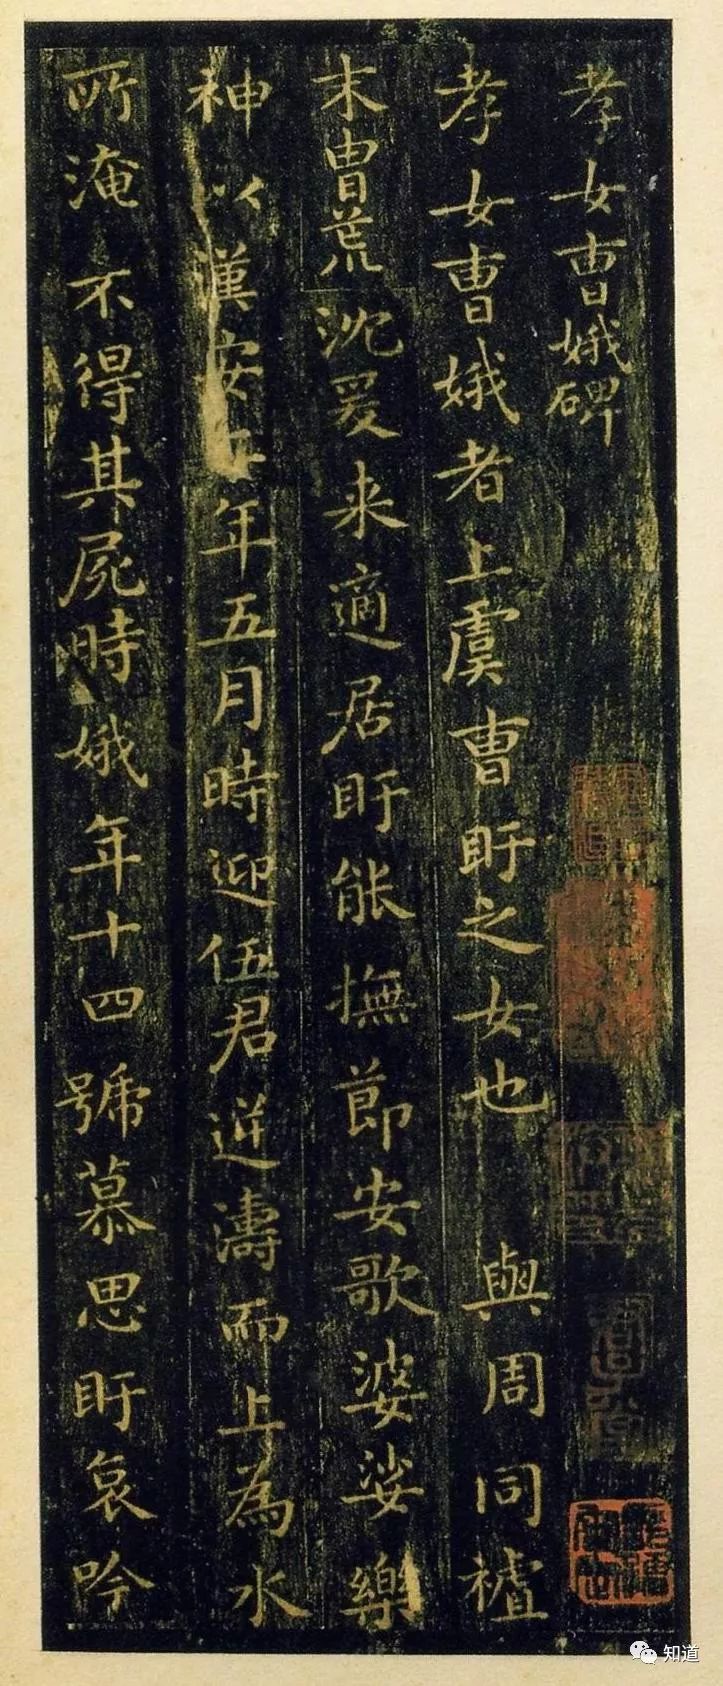 孝女曹娥碑
孝女曹娥者上虞曹盱之女也與周同
末曹荒沈爰来適居盱能撫節安歌婆娑樂
神以漢安年五月時迎伍君逆濤而上為水
所淹不得其屍時娥年十四號慕思盱哀吟
知道